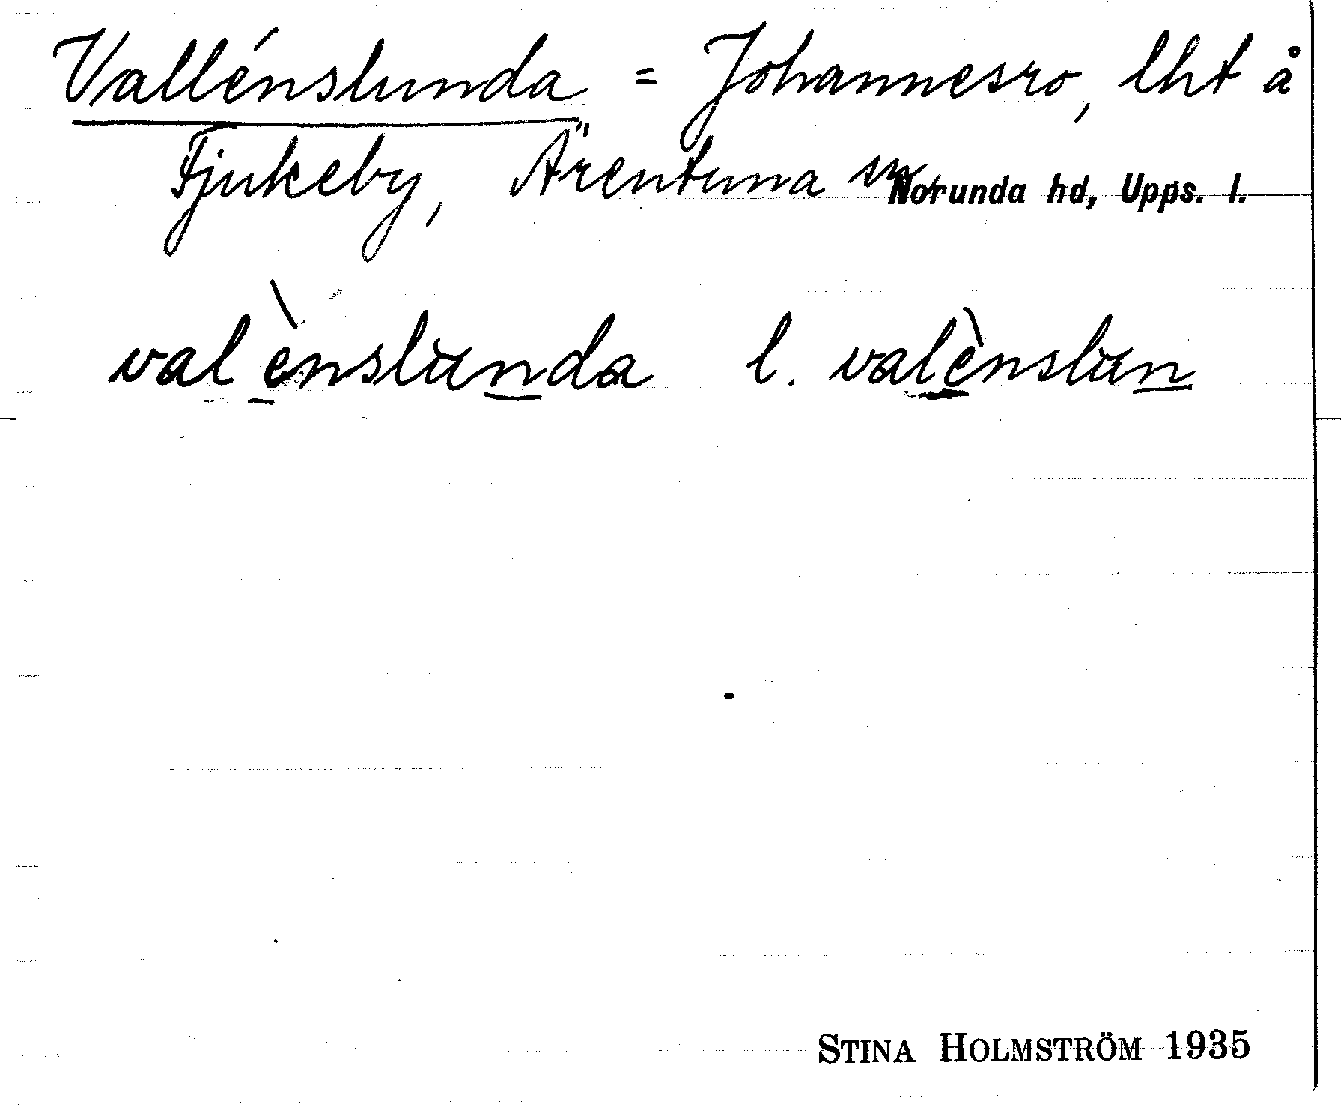 Vallénslunda = Johannesro, lht å
Fjukeby, Ärentuna sn Norunda hd, Upps. l.
valènslunda l. valènslun
STINA HOLMSTRÖM 1935